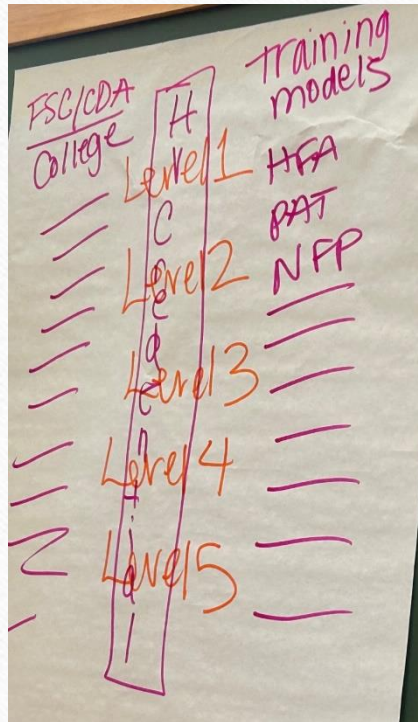 FSC/CDA
College
HV Credential
Level 1
Level 2
Level 3
Level 4
Level 5
training
models
HFA
PAT
NFP